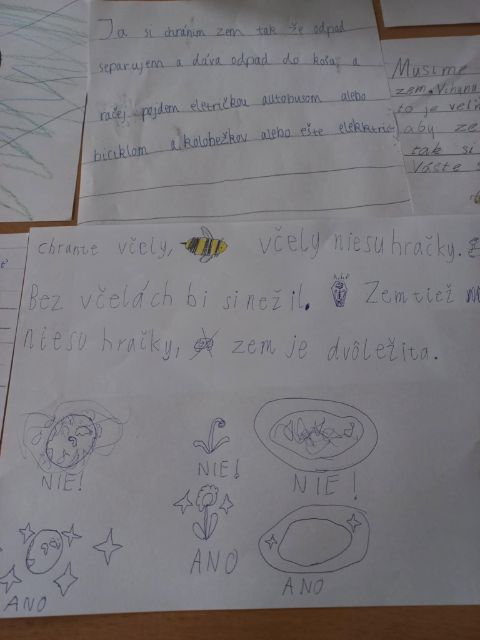 Ja si chránim zem tak že odpad
separujem a dáva odpad do koša, a
račej pojdem eletričkou autobusom alebo
biciklom a kolobežkov alebo ešte elektric
Musíme
zem.
to je
aby ze
tak si
chrante včely, včely niesu hračky.
Bez včelách bi si nežil. Zem tiež
niesu hračky, zem je dvôležita.
NIE! NIE! NIE!
ANO ANO ANO